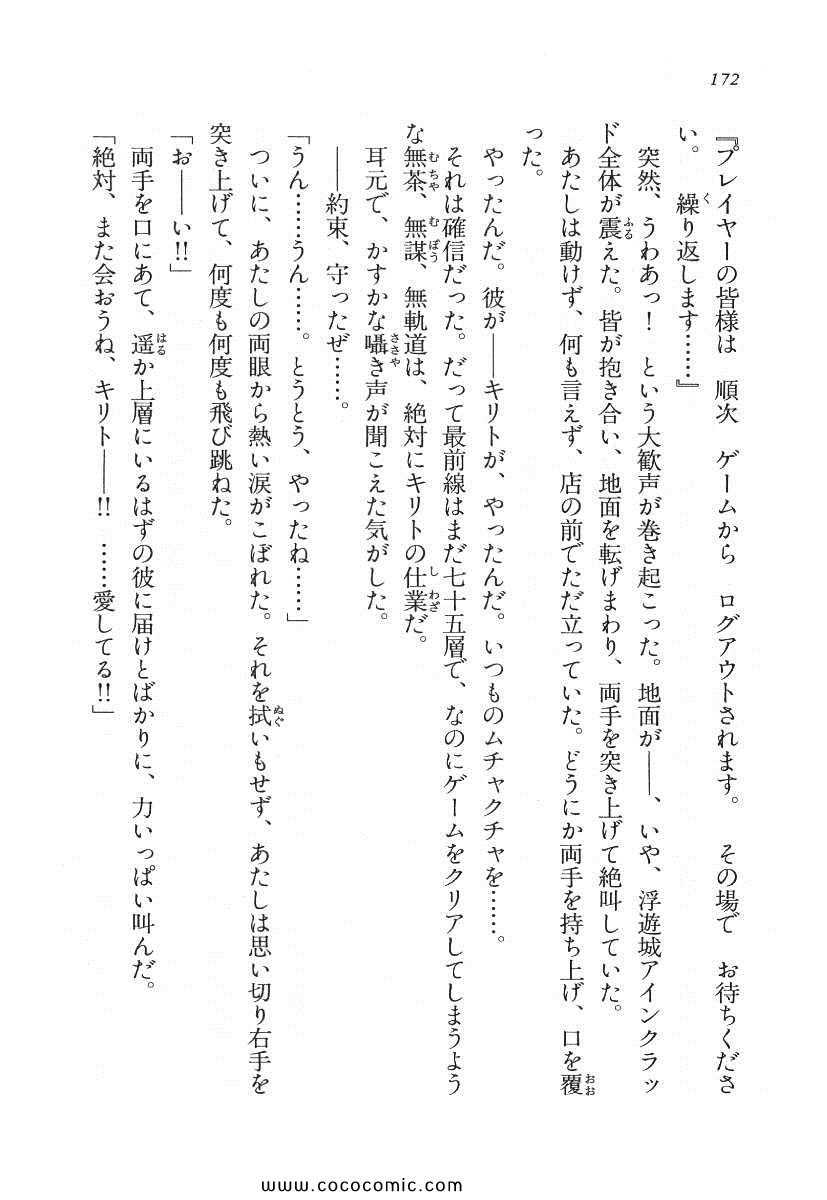 172
『プレイヤーの皆様は　順次　ゲームから　ログアウトされます。　その場で　お待ちくださ
い。　繰り返します……』
　突然、うわあっ！　という大歓声が巻き起こった。地面が――、いや、浮遊城アインクラッ
ド全体が震えた。皆が抱き合い、地面を転げまわり、両手を突き上げて絶叫していた。
　あたしは動けず、何も言えず、店の前でただ立っていた。どうにか両手を持ち上げ、口を覆
った。
　やったんだ。彼が――キリトが、やったんだ。いつものムチャクチャを……。
　それは確信だった。だって最前線はまだ七十五層で、なのにゲームをクリアしてしまうよう
な無茶、無謀、無軌道は、絶対にキリトの仕業だ。
　耳元で、かすかな囁き声が聞こえた気がした。
　――約束、守ったぜ……。
「うん……うん……。とうとう、やったね……」
　ついに、あたしの両眼から熱い涙がこぼれた。それを拭いもせず、あたしは思い切り右手を
突き上げて、何度も何度も飛び跳ねた。
「お――い!!」
　両手を口にあて、遥か上層にいるはずの彼に届けとばかりに、力いっぱい叫んだ。
「絶対、また会おうね、キリト――!!　……愛してる!!」
www.cococomic.com